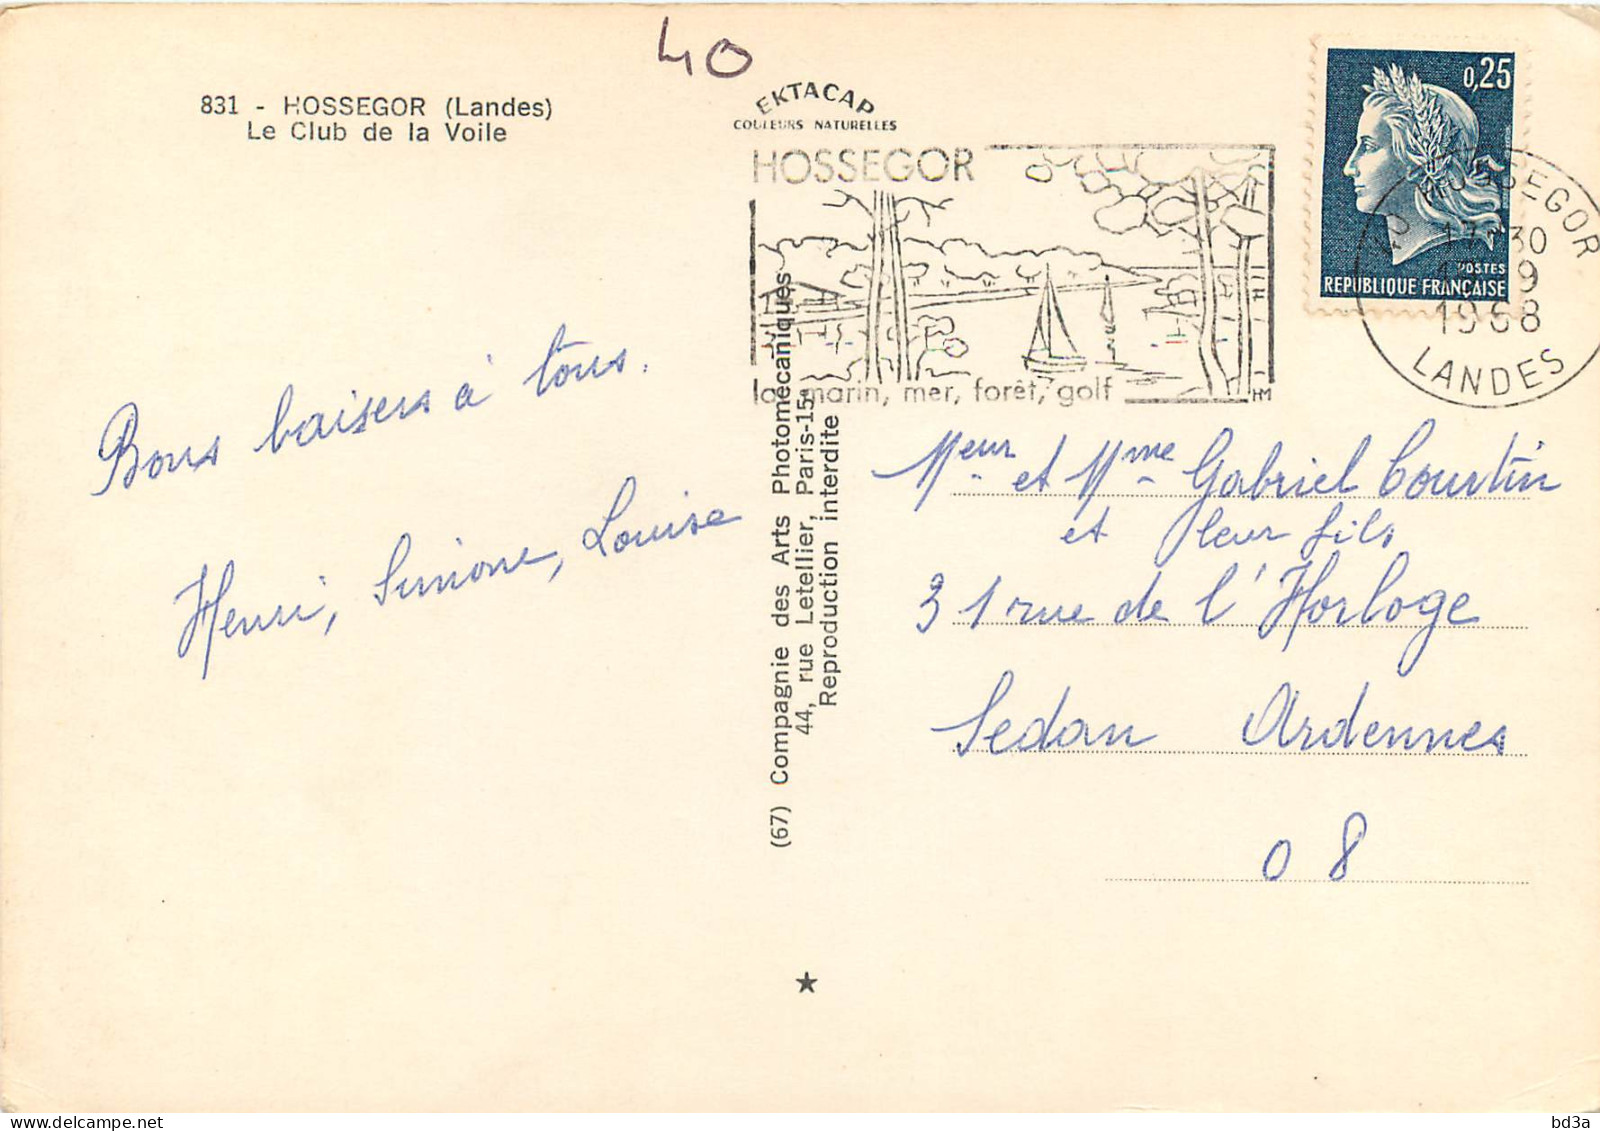 40
831 - HOSSEGOR (Landes)
Le Club de la Voile
EKTACAP
COULEURS NATURELLES
HOSSEGOR
lac marin, mer, forêt, golf
HM
0,25
POSTES
REPUBLIQUE FRANÇAISE
40 HOSSEGOR
17 30
9
1968
LANDES
Bons baisers à tous.
Henri, Simone, Louise
(67) Compagnie des Arts Photomécaniques
44, rue Letellier, Paris-15e
Reproduction interdite
Meur et Mme Gabriel Courtin
et leur fils
31 rue de l'Horloge
Sedan Ardennes
08
bd3a